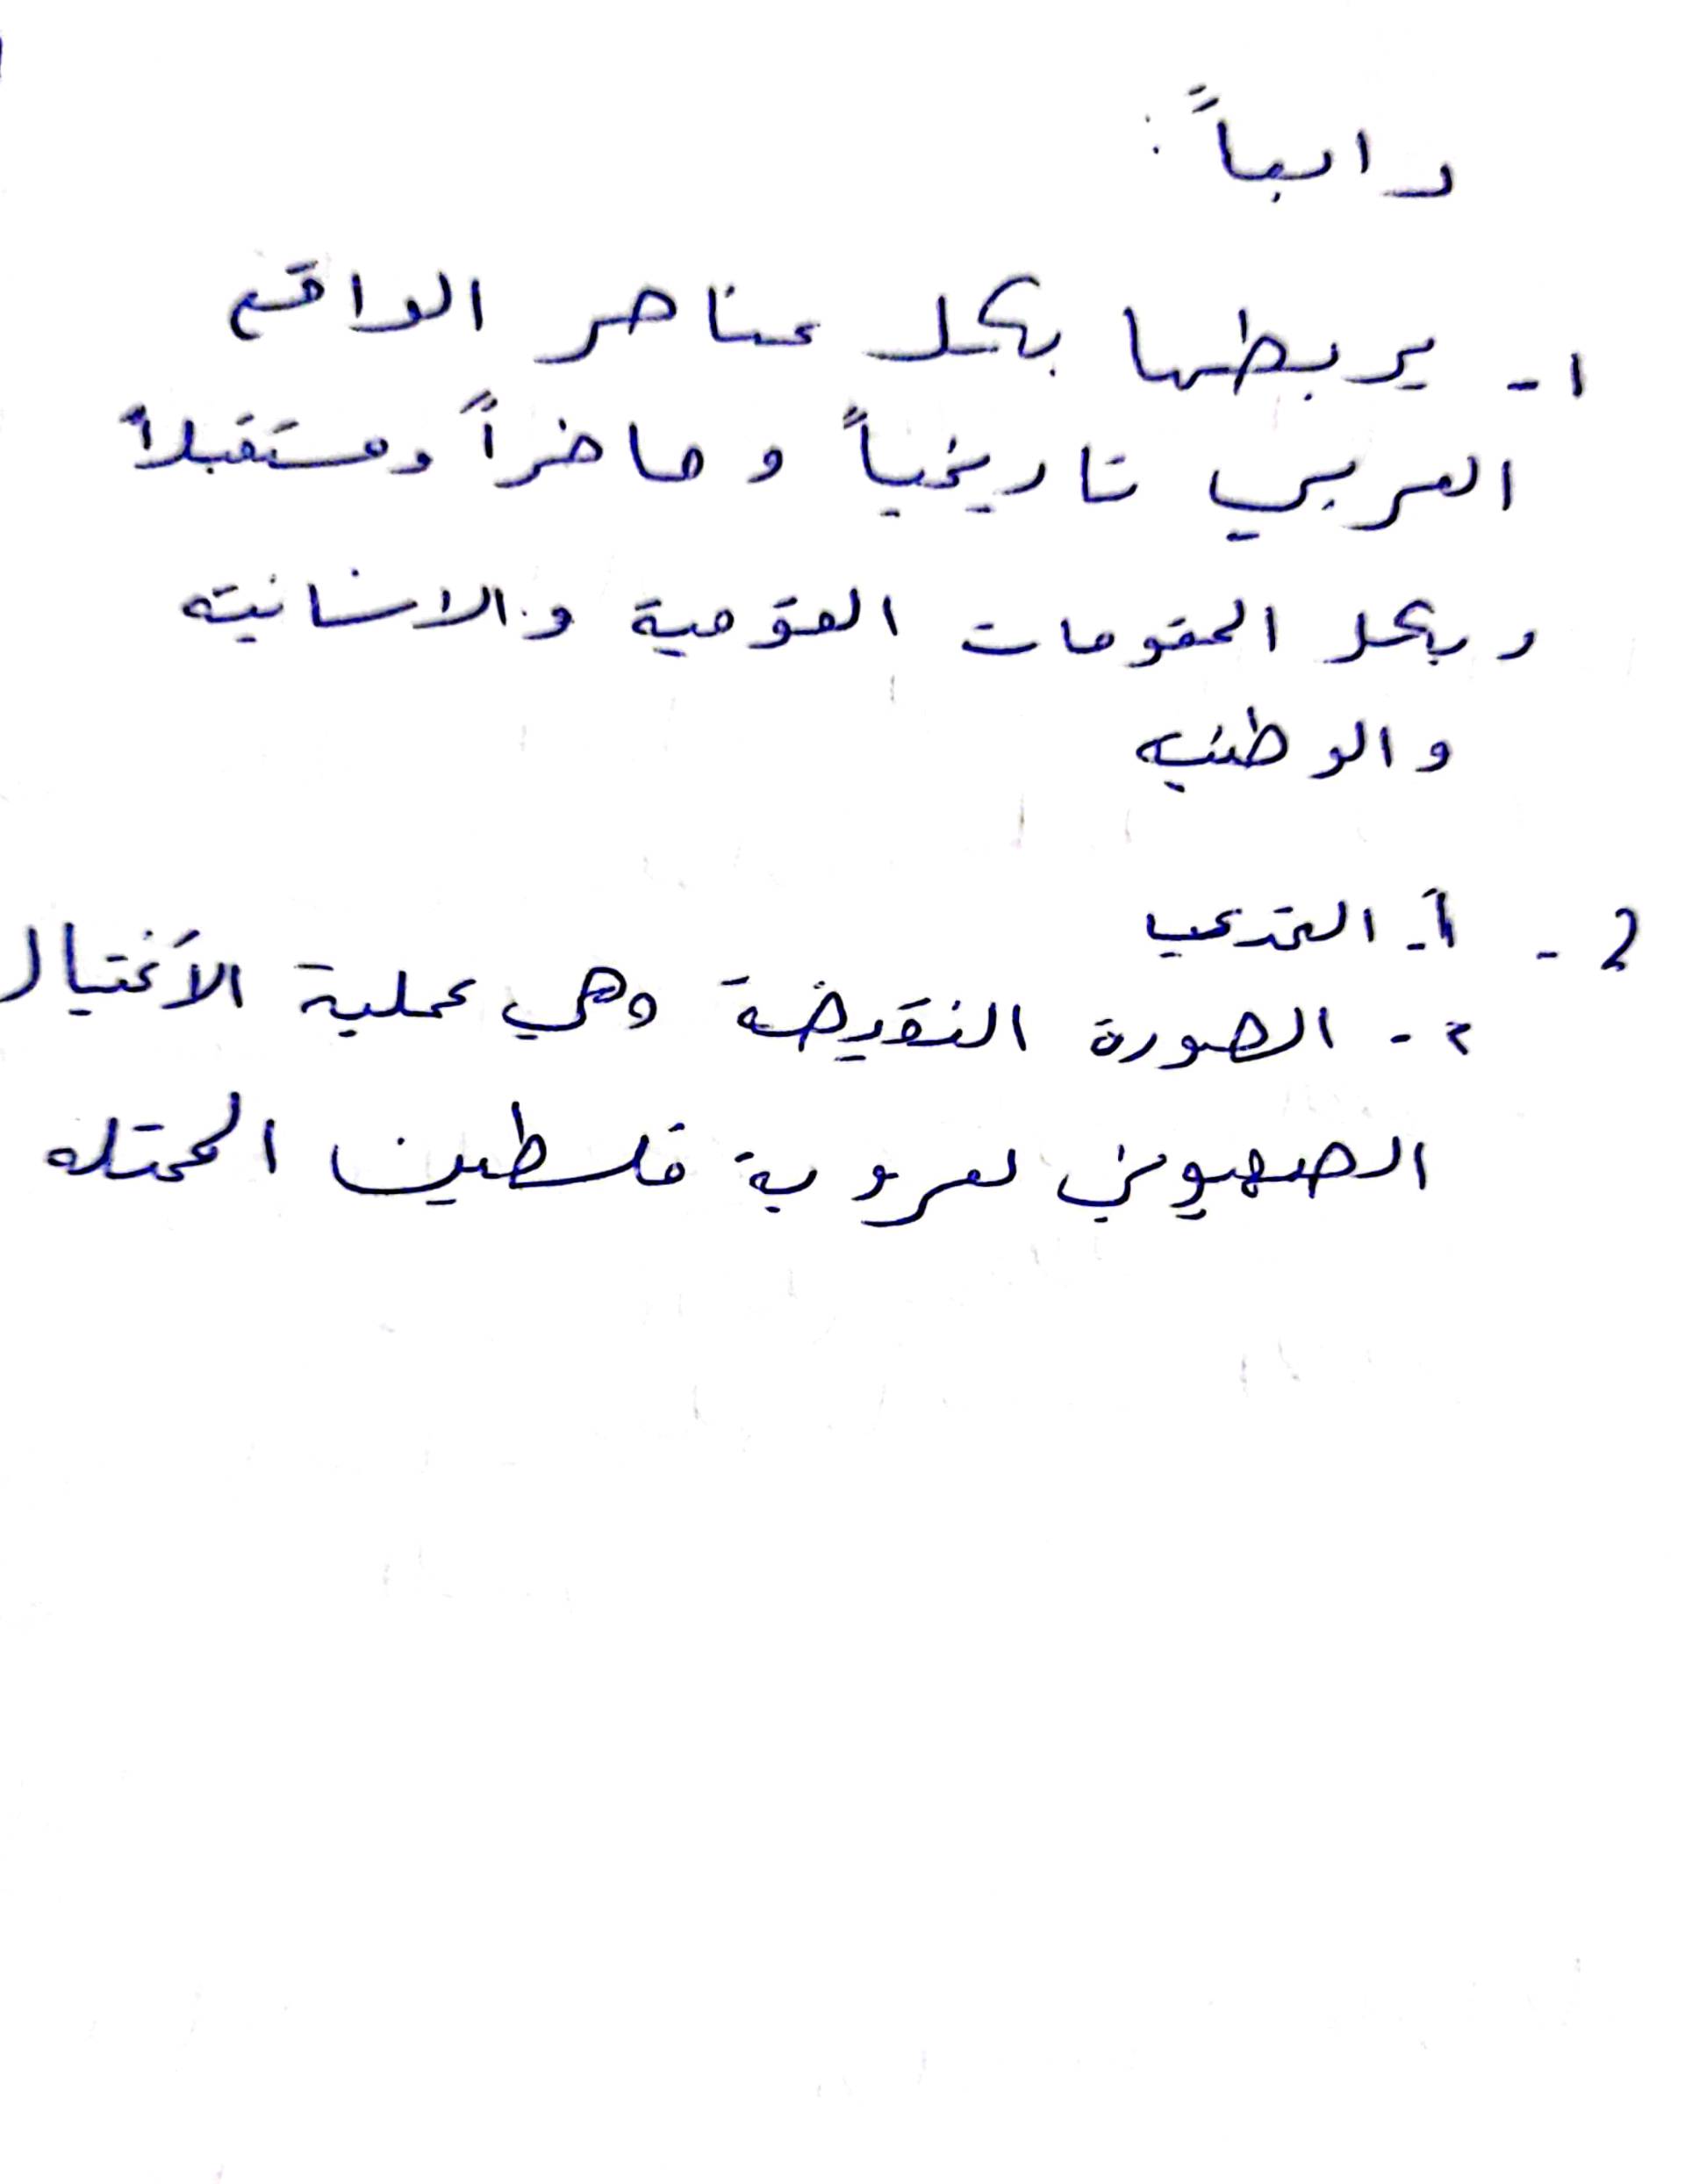 رابعاً :
١- يربطها بكل عناصر الواقع
العربي تاريخياً وحاضراً ومستقبلاً
وبكل المقومات القومية والانسانيته
والوطنيه
2 - أ-
٢- الصورة النقيضة وهي عملية الأغتيال
الصهيوني لعروبة فلسطين المحتله